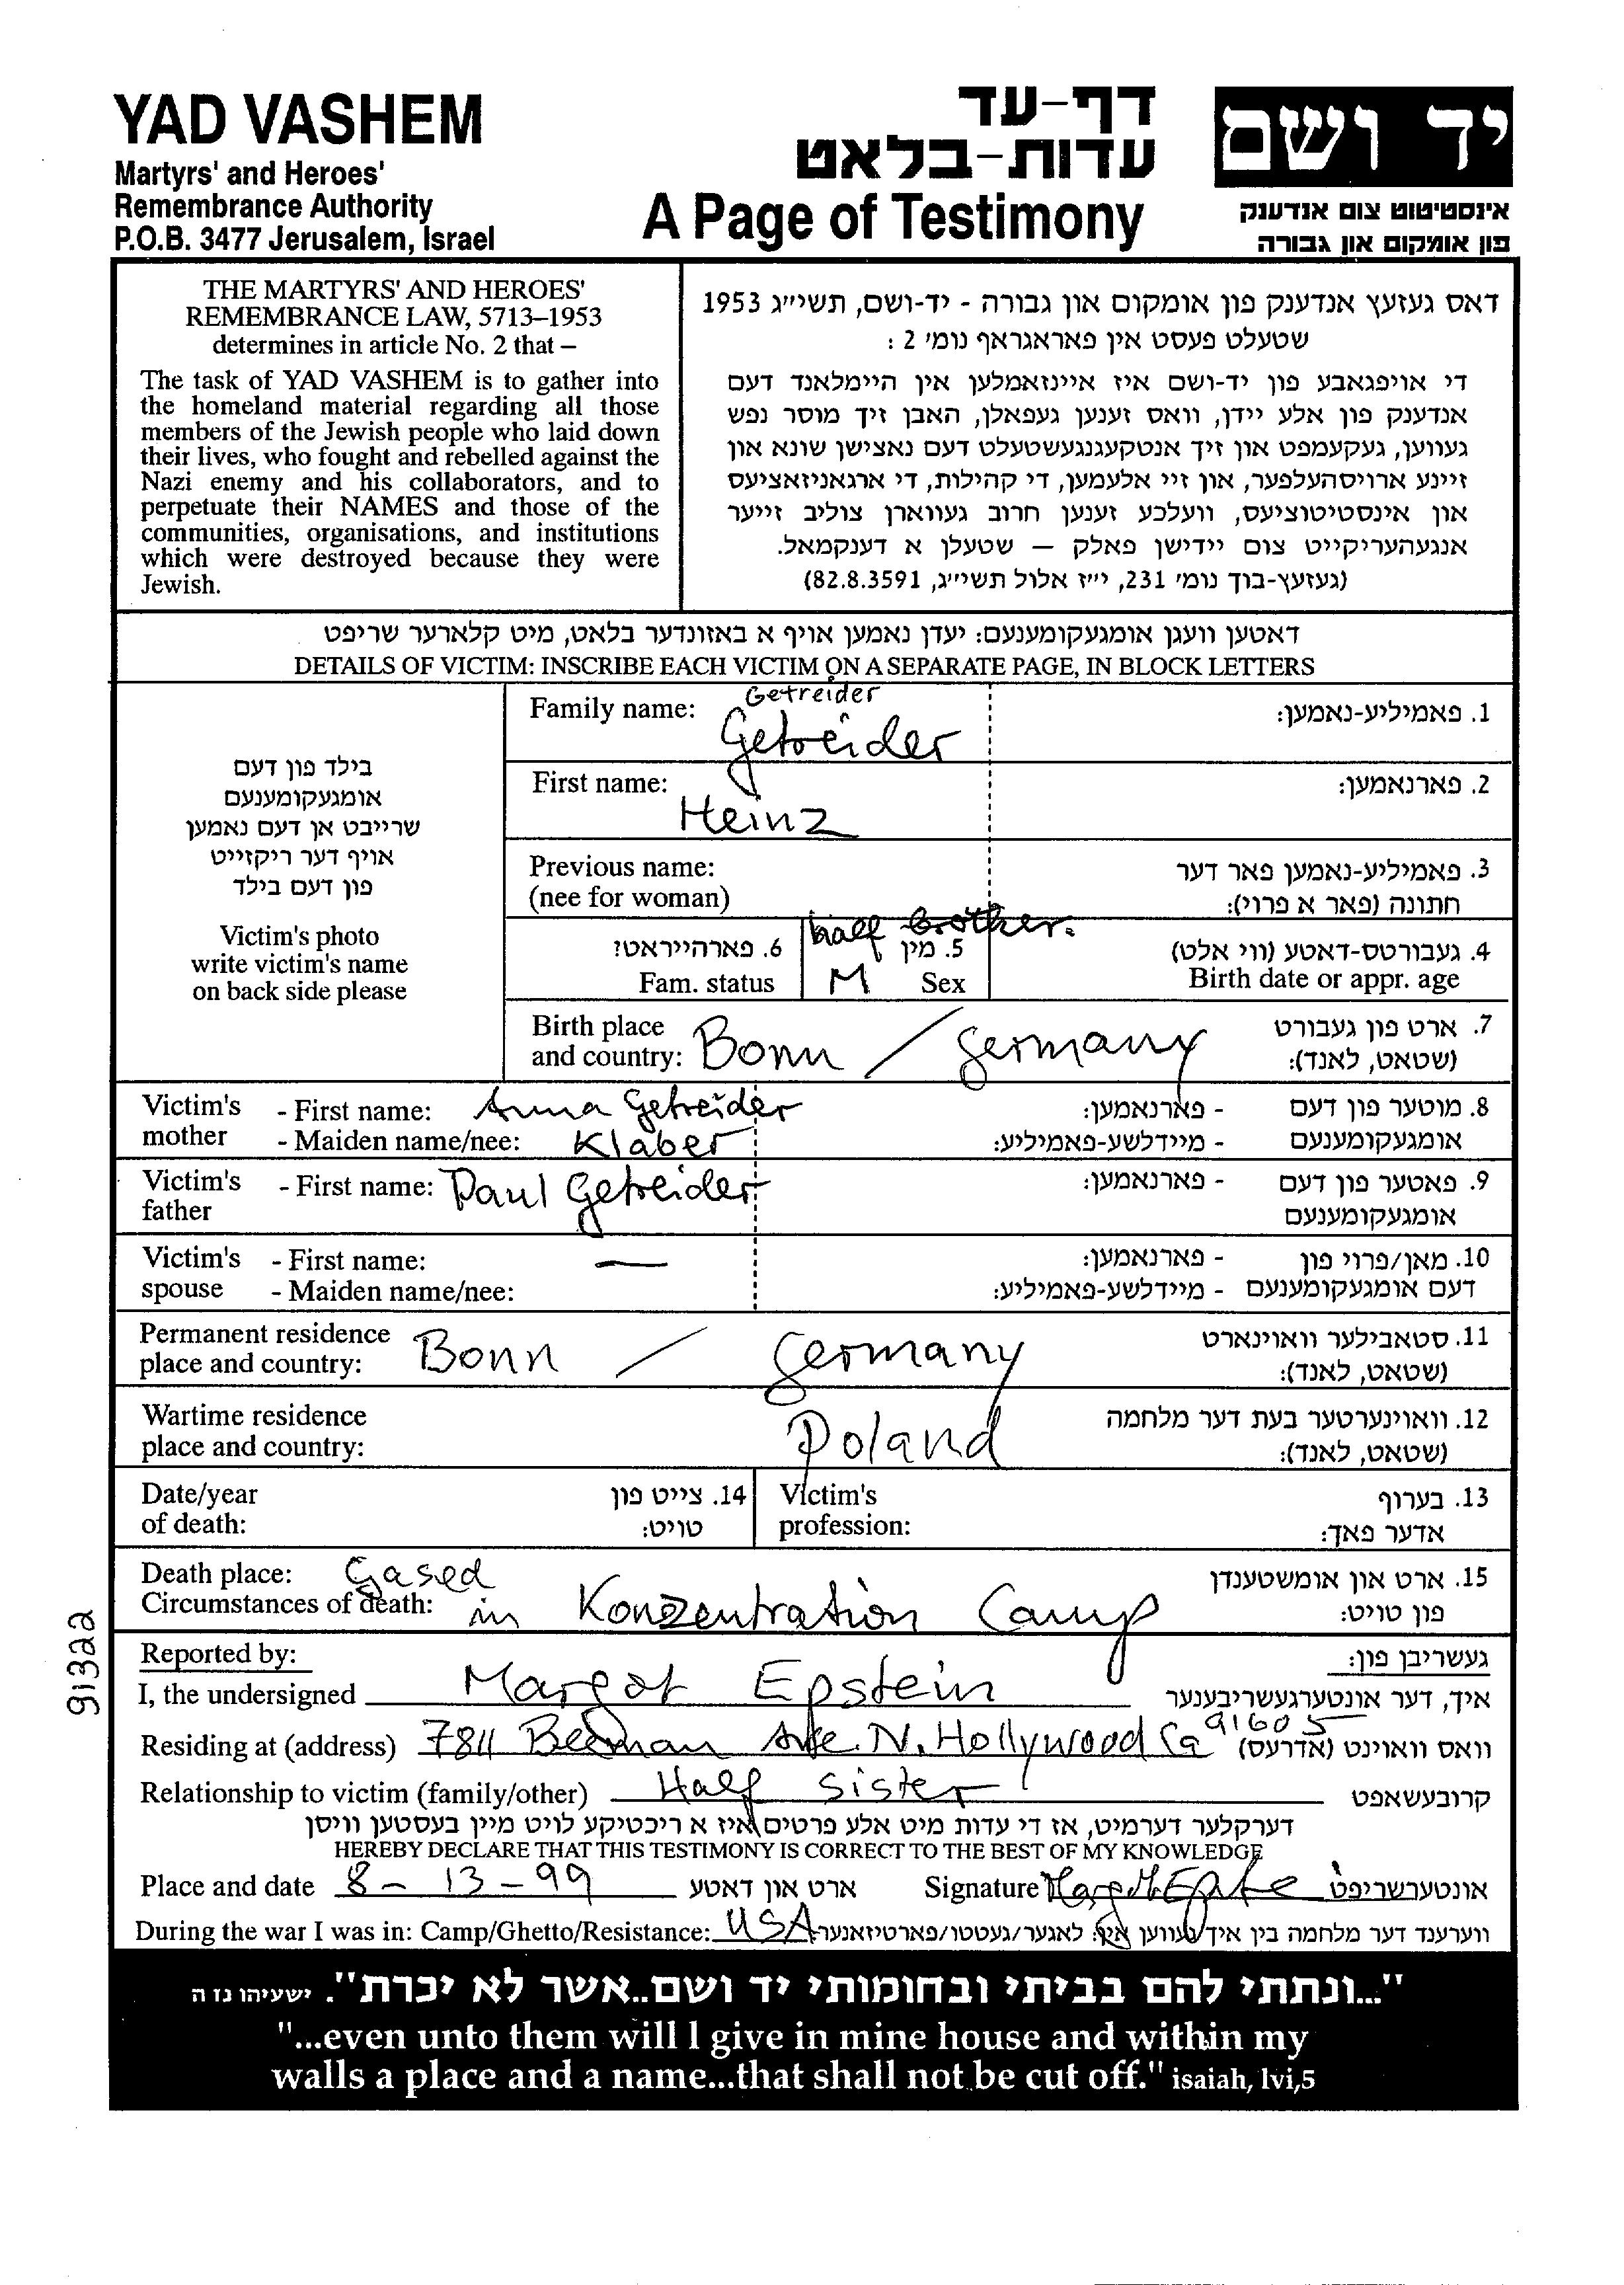 YAD VASHEM
Martyrs' and Heroes'
Remembrance Authority
P.O.B. 3477 Jerusalem, Israel
דף-עד
עדות-בלאט
A Page of Testimony
יד ושם
אינסטיטוט צום אנדענק
פון אומקום און גבורה
THE MARTYRS' AND HEROES'
REMEMBRANCE LAW, 5713–1953
determines in article No. 2 that –
The task of YAD VASHEM is to gather into
the homeland material regarding all those
members of the Jewish people who laid down
their lives, who fought and rebelled against the
Nazi enemy and his collaborators, and to
perpetuate their NAMES and those of the
communities, organisations, and institutions
which were destroyed because they were
Jewish.
דאס געזעץ אנדענק פון אומקום און גבורה - יד-ושם, תשי״ג 1953
שטעלט פעסט אין פאראגראף נומ׳ 2 :
די אויפגאבע פון יד-ושם איז איינזאמלען אין היימלאנד דעם
אנדענק פון אלע יידן, וואס זענען געפאלן, האבן זיך מוסר נפש
געווען, געקעמפט און זיך אנטקעגנגעשטעלט דעם נאצישן שונא און
זיינע ארויסהעלפער, און זיי אלעמען, די קהילות, די ארגאניזאציעס
און אינסטיטוציעס, וועלכע זענען חרוב געווארן צוליב זייער
אנגעהעריקייט צום יידישן פאלק – שטעלן א דענקמאל.
(געזעץ-בוך נומ׳ 231, י״ז אלול תשי״ג, 82.8.3591)
דאטען וועגן אומגעקומענעם: יעדן נאמען אויף א באזונדער בלאט, מיט קלארער שריפט
DETAILS OF VICTIM: INSCRIBE EACH VICTIM ON A SEPARATE PAGE, IN BLOCK LETTERS
בילד פון דעם
אומגעקומענעם
שרייבט אן דעם נאמען
אויף דער ריקזייט
פון דעם בילד
Victim's photo
write victim's name
on back side please
Getreider
Family name: Getreider 1. פאמיליע-נאמען:
First name: Heinz 2. פארנאמען:
Previous name: 3. פאמיליע-נאמען פאר דער
(nee for woman) חתונה (פאר א פרוי):
half brother.
6. פארהייראט? 5. מין 4. געבורטס-דאטע (ווי אלט)
Fam. status M Sex Birth date or appr. age
Birth place 7. ארט פון געבורט
and country: Bonn / Germany (שטאט, לאנד):
Victim's - First name: Anna Getreider - פארנאמען: 8. מוטער פון דעם
mother - Maiden name/nee: Klaber - מיידלשע-פאמיליע: אומגעקומענעם
Victim's - First name: Paul Getreider - פארנאמען: 9. פאטער פון דעם
father אומגעקומענעם
Victim's - First name: — - פארנאמען: 10. מאן/פרוי פון
spouse - Maiden name/nee: - מיידלשע-פאמיליע: דעם אומגעקומענעם
Permanent residence 11. סטאבילער וואוינארט
place and country: Bonn / Germany (שטאט, לאנד):
Wartime residence 12. וואוינערטער בעת דער מלחמה
place and country: Poland (שטאט, לאנד):
Date/year 14. צייט פון Victim's 13. בערוף
of death: טויט: profession: אדער פאך:
Death place: Gased 15. ארט און אומשטענדן
Circumstances of death: in Konzentration Camp פון טויט:
91322
Reported by: געשריבן פון:
I, the undersigned Margot Epstein איך, דער אונטערגעשריבענער
Residing at (address) 7811 Beeman Ave. N. Hollywood Ca 91605 וואס וואוינט (אדרעס)
Relationship to victim (family/other) Half sister קרובעשאפט
דערקלער דערמיט, אז די עדות מיט אלע פרטים איז א ריכטיקע לויט מיין בעסטען וויסן
HEREBY DECLARE THAT THIS TESTIMONY IS CORRECT TO THE BEST OF MY KNOWLEDGE
Place and date 8 - 13 - 99 ארט און דאטע Signature Margot Epstein אונטערשריפט
During the war I was in: Camp/Ghetto/Resistance: USA ווערענד דער מלחמה בין איך געווען אין: לאגער/געטטו/פארטיזאנער
"...ונתתי להם בביתי ובחומותי יד ושם..אשר לא יכרת". ישעיהו נז ה
"...even unto them will I give in mine house and within my
walls a place and a name...that shall not be cut off." isaiah, lvi,5